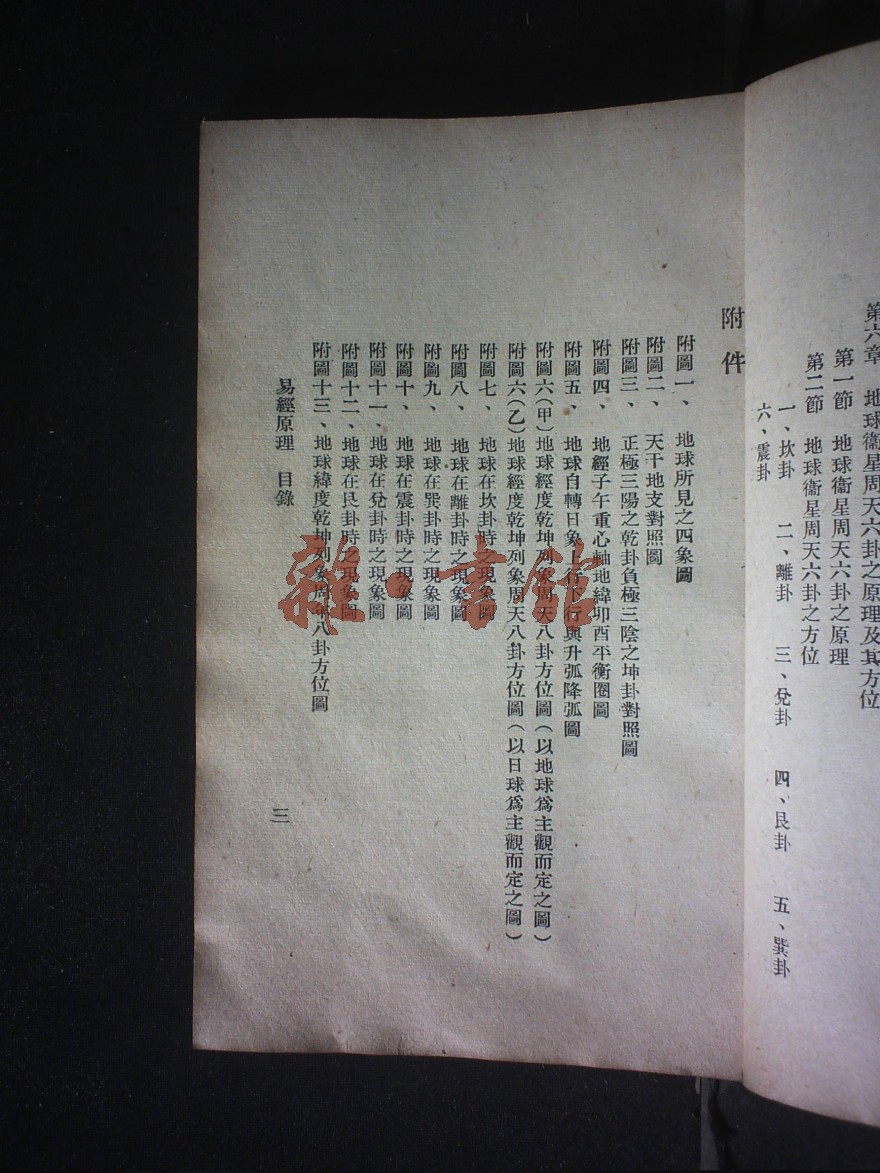 第六章　地球衞星周天六卦之原理及其方位
第一節　地球衞星周天六卦之原理
第二節　地球衞星周天六卦之方位
一、坎卦　二、離卦　三、兌卦　四、艮卦　五、巽卦
六、震卦
附件
附圖一、地球所見之四象圖
附圖二、天干地支對照圖
附圖三、正極三陽之乾卦負極三陰之坤卦對照圖
附圖四、地經子午重心軸地緯卯酉平衡圈圖
附圖五、地球自轉日象上行下行與升弧降弧圖
附圖六（甲）地球經度乾坤列象周天八卦方位圖（以地球爲主觀而定之圖）
附圖六（乙）地球經度乾坤列象周天八卦方位圖（以日球爲主觀而定之圖）
附圖七、地球在坎卦時之現象圖
附圖八、地球在離卦時之現象圖
附圖九、地球在巽卦時之現象圖
附圖十、地球在震卦時之現象圖
附圖十一、地球在兌卦時之現象圖
附圖十二、地球在艮卦時之現象圖
附圖十三、地球緯度乾坤列象周年八卦方位圖
易經原理　目錄
三
雜書館